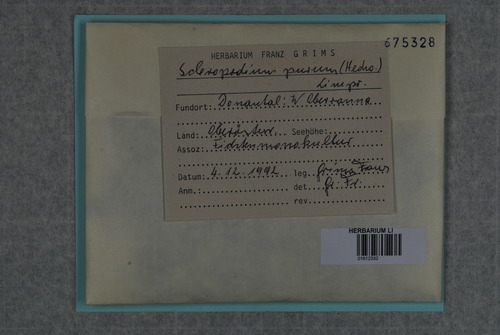 675328
HERBARIUM FRANZ GRIMS
Scleropodium purum (Hedw.)
Limpr.
Fundort: Donautal: W Oberranna
Land: Oberösterr. Seehöhe:
Assoz: Fichtenmonokultur
Datum: 4.12.1992 leg. Grims Franz
Anm.: det. Gr. Fr.
rev.
HERBARIUM LI